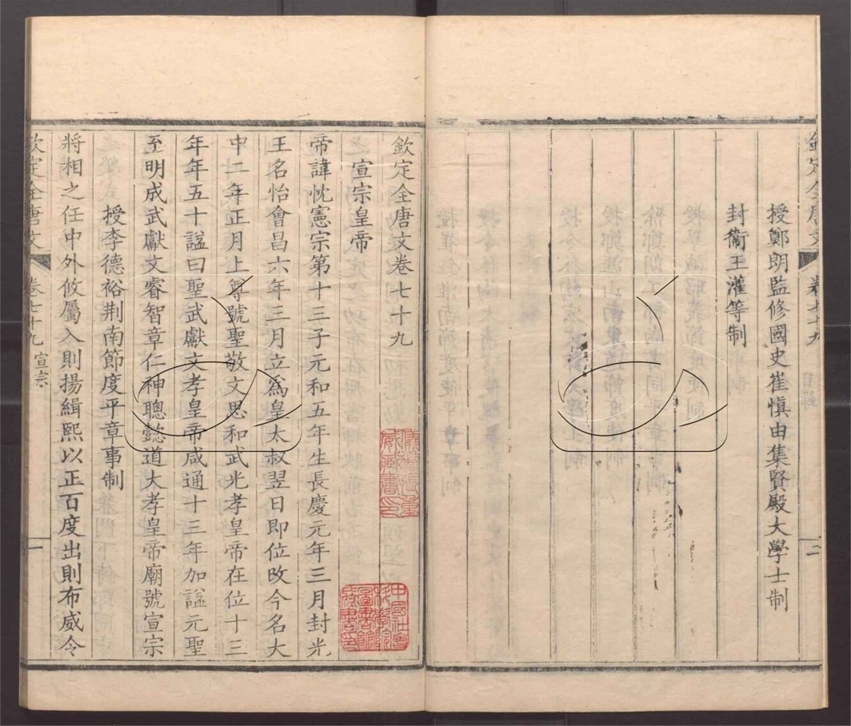 欽定全唐文
卷七十九
目錄
二
授鄭朗監修國史崔愼由集賢殿大學士制
封衞王灌等制
欽定全唐文卷七十九
宣宗皇帝
帝諱忱憲宗第十三子元和五年生長慶元年三月封光
王名怡會昌六年三月立爲皇太叔翌日卽位改今名大
中二年正月上尊號聖敬文思和武光孝皇帝在位十三
年年五十謚曰聖武獻文孝皇帝咸通十三年加謚元聖
至明成武獻文睿智章仁神聰懿道大孝皇帝廟號宣宗
授李德裕荆南節度平章事制
將相之任中外攸屬入則揚緝熙以正百度出則布威令
欽定全唐文
卷七十九
宣宗
一